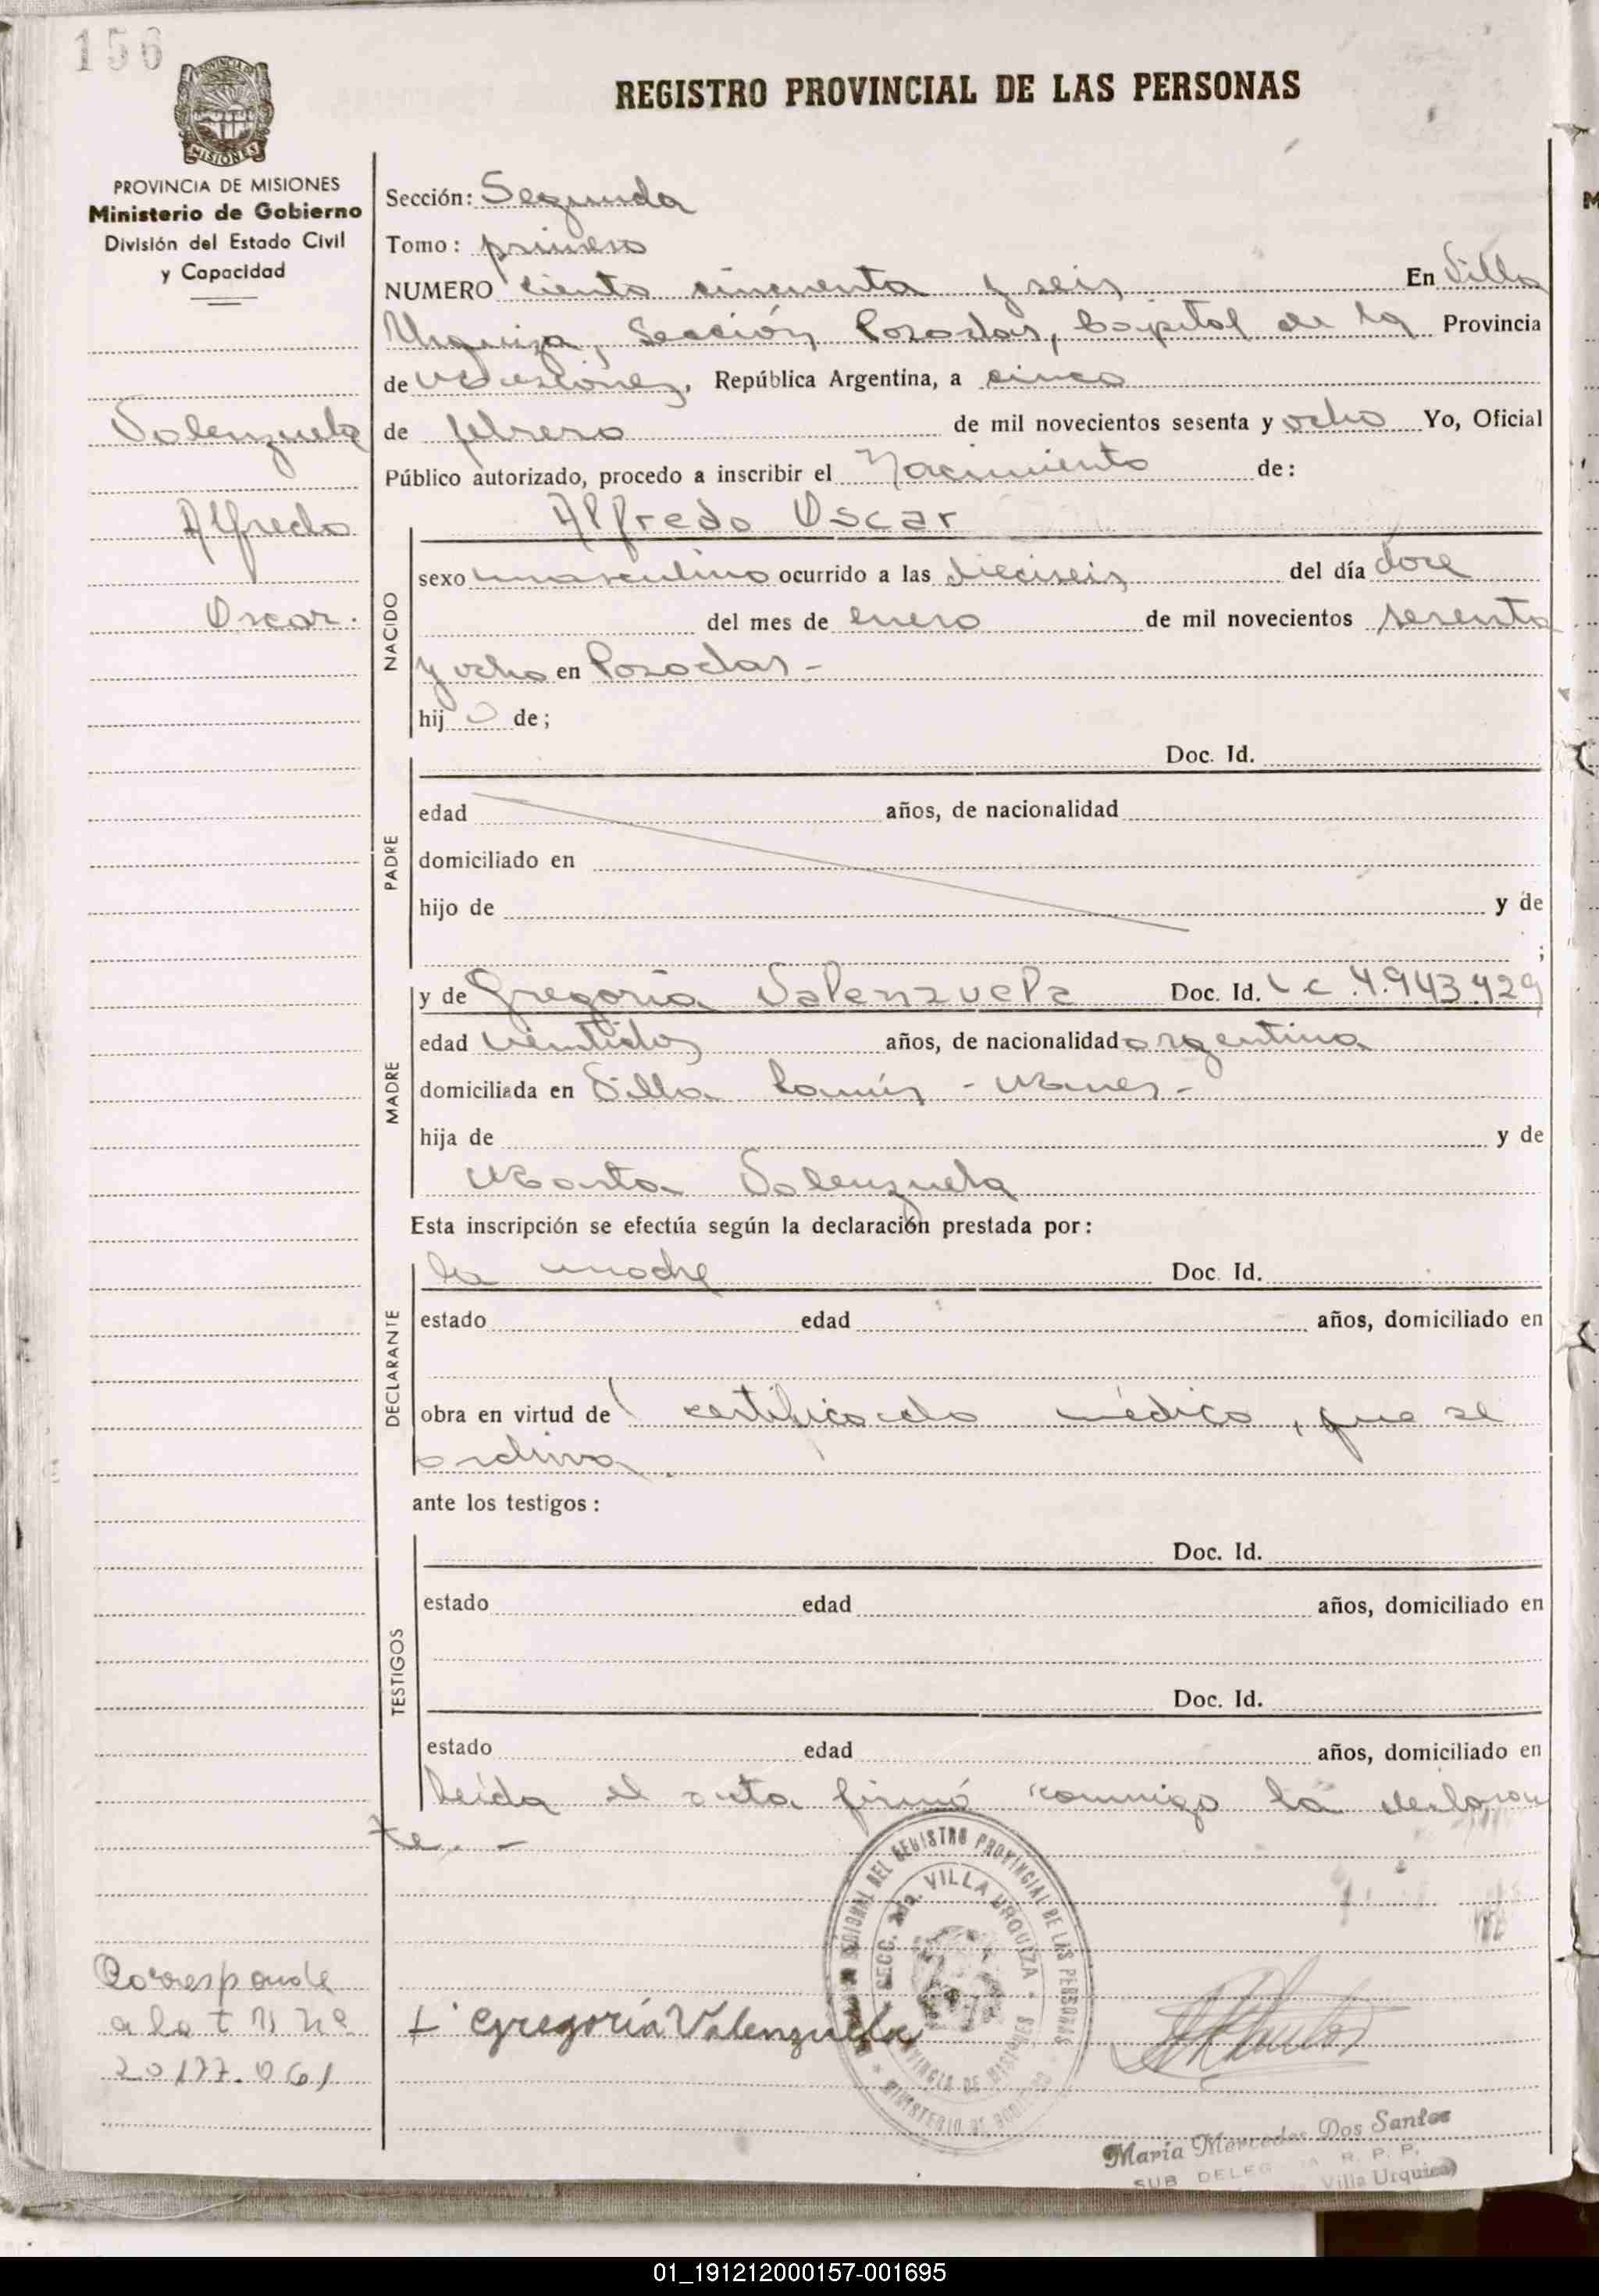 156
REGISTRO PROVINCIAL DE LAS PERSONAS
MISIONES
PROVINCIA DE MISIONES
Ministerio de Gobierno
División del Estado Civil
y Capacidad
Valenzuela
Alfredo
Oscar.
Sección: Segunda
Tomo: primero
NUMERO ciento cincuenta y seis En Villa
Urquiza, Sección Posadas, Capital de la Provincia
de Misiones, República Argentina, a cinco
de febrero de mil novecientos sesenta y ocho Yo, Oficial
Público autorizado, procedo a inscribir el Nacimiento de:
Alfredo Oscar
NACIDO
sexo masculino ocurrido a las dieciseis del día doce
del mes de enero de mil novecientos sesenta
y ocho en Posadas -
hij o de;
PADRE
Doc. Id.
edad años, de nacionalidad
domiciliado en
hijo de y de
;
MADRE
y de Gregoria Valenzuela Doc. Id. L C 4.943.429
edad veintidos años, de nacionalidad argentina
domiciliada en Villa Lanús - Mnes -
hija de y de
Marta Valenzuela
Esta inscripción se efectúa según la declaración prestada por:
DECLARANTE
la madre Doc. Id.
estado edad años, domiciliado en
obra en virtud de l certificado médico, que se
archiva.
ante los testigos:
TESTIGOS
Doc. Id.
estado edad años, domiciliado en
Doc. Id.
estado edad años, domiciliado en
Leída el acta firmó conmigo la declaran
te. -
REGISTRO PROVINCIAL DE LAS PERSONAS
SECC. 2da. VILLA URQUIZA - PROVINCIA DE MISIONES
MINISTERIO DE GOBIERNO
Corresponde
a la
20177.061
Gregoria Valenzuela
María Mercedes Dos Santos
SUB DELEG R. P. P.
Villa Urquiza
01_191212000157-001695